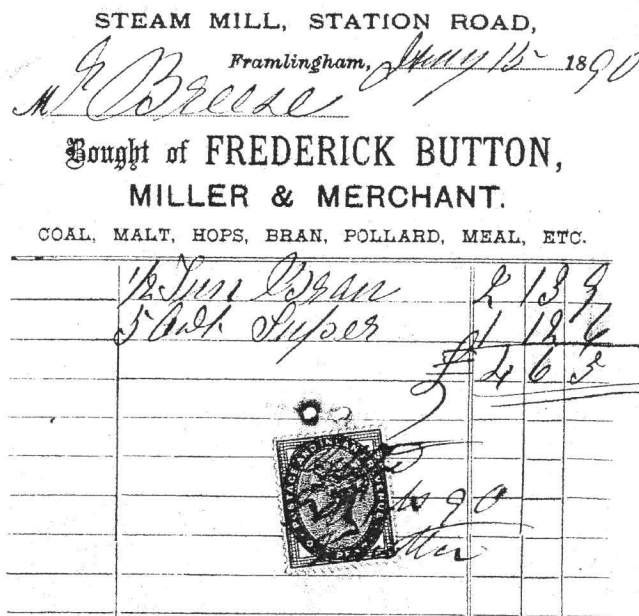 STEAM MILL, STATION ROAD,
Framlingham, Jany 15 1890
Mr Breese
Bought of FREDERICK BUTTON,
MILLER & MERCHANT.
COAL, MALT, HOPS, BRAN, POLLARD, MEAL, ETC.
1/2 Tun Bran 2 13 9
5 Cwt Super 1 12 6
£ 4 6 3
90